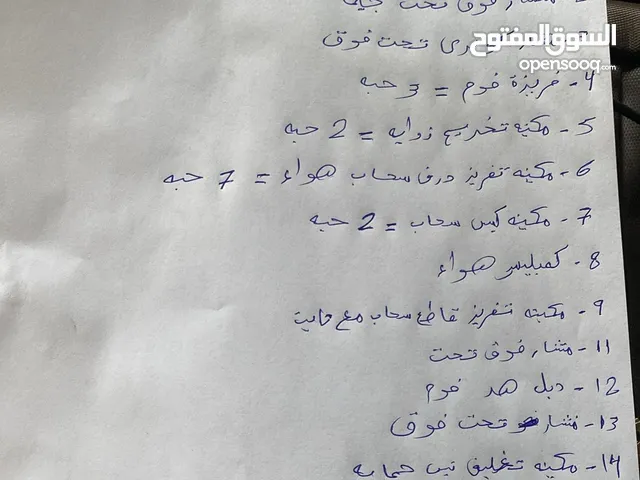 منشار فوق تحت
السوق المفتوح
opensooq.com
تحت فوق
4- فريزة فوم = 3 حبه
5- مكينه تخريم زوايه = 2 حبه
6- مكينه تفريز ورق سحاب هواء = 7 حبه
7- مكينه كبس سحاب = 2 حبه
8- كمبليسر هواء
9- مكينه تفريز قاطع سحاب مع
11- منشار فوق تحت
12- دبل هد فوم
13- منشار تحت فوق
14- مكينه تغليف